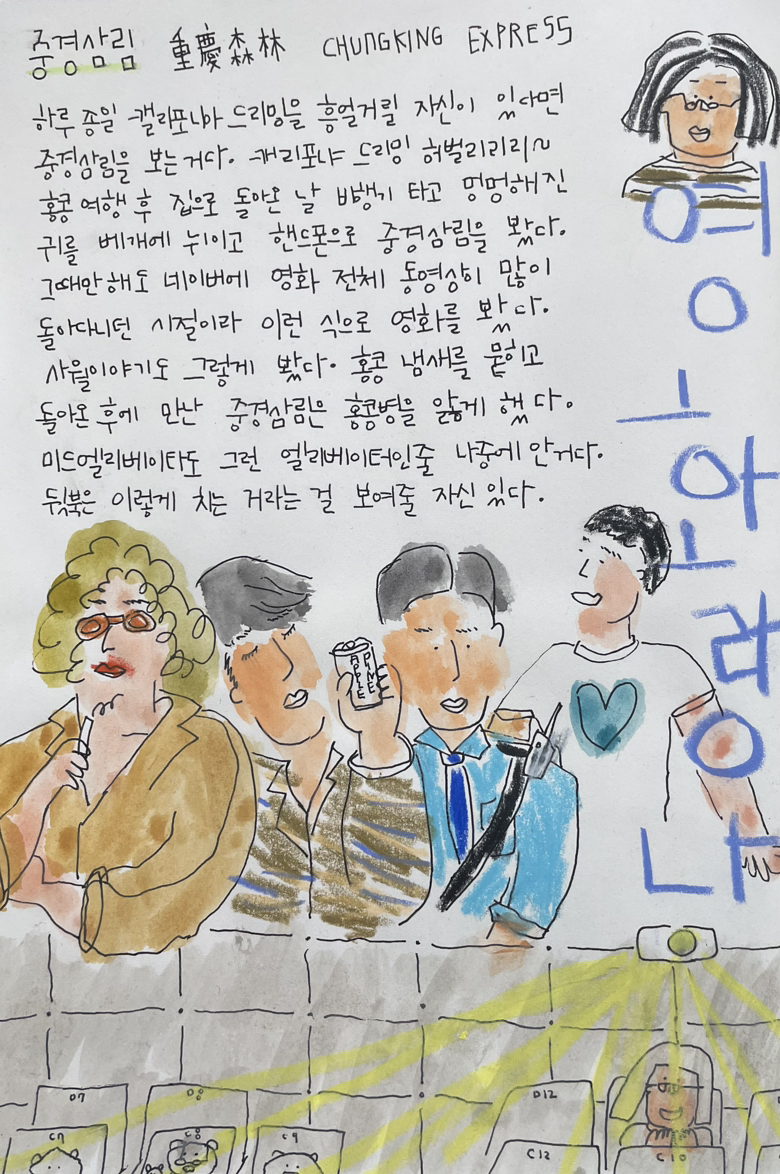 중경삼림 重慶森林 CHUNGKING EXPRESS
하루종일 캘리포니아 드리밍을 흥얼거릴 자신이 있다면
중경삼림을 보는거다. 캐리포냐 드리밍 허벌리리리~
홍콩여행 후 집으로 돌아온 날 비행기 타고 멍멍해진
귀를 베개에 뉘이고 핸드폰으로 중경삼림을 봤다.
그때만해도 네이버에 영화 전체 동영상이 많이
돌아다니던 시절이라 이런 식으로 영화를 봤다.
사월이야기도 그렇게 봤다. 홍콩 냄새를 묻히고
돌아온 후에 만난 중경삼림은 홍콩병을 앓게 했다.
미드엘리베이타도 그런 엘리베이터인줄 나중에 안거다.
뒷북은 이렇게 치는 거라는 걸 보여줄 자신 있다.
영
으
와
랑
나
PINE
APPLE
D7
D8
D12
C7
C8
C9
C12
C10